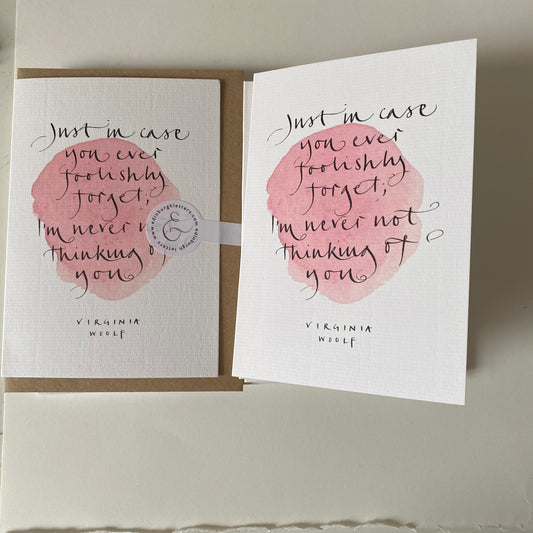 Just in case
you ever
foolishly
forget;
I'm never n
thinking of
you
VIRGINIA
WOOLF
www.edinburghletters.com edinburgh letters
&
Just in case
you ever
foolishly
forget;
I'm never not
thinking of
you
VIRGINIA
WOOLF